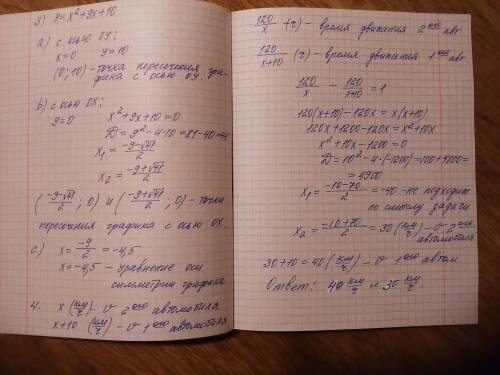 3) y=x²+9x+10
a) с осью OY:
x=0 y=10
(0;10) - точка пересечения гра-
фика с осью OY.
b) с осью OX:
y=0 x²+9x+10=0
D=9²-4·10=81-40=41
x₁=(-9-√41)/2
x₂=(-9+√41)/2
((-9-√41)/2; 0) и ((-9+√41)/2; 0) - точки
пересечения графика с осью OX.
c) x=-9/2=-4,5
x=-4,5 - уравнение оси
симметрии графика
4. x (км/ч) - v 2ого автомобиля
x+10 (км/ч) - v 1ого автомобиля
120/x (ч) - время движения 2ого авт
120/(x+10) (ч) - время движения 1ого авт
120/x - 120/(x+10) = 1
120(x+10)-120x=x(x+10)
120x+1200-120x=x²+10x
x²+10x-1200=0
D=10²-4·(-1200)=100+4800=
=4900
x₁=(-10-70)/2=-40-не подходит
по смыслу задачи
x₂=(-10+70)/2=30(км/ч)-v 2ого
автомобиля
30+10=40(км/ч)-v 1ого автом
Ответ: 40 км/ч и 30 км/ч.